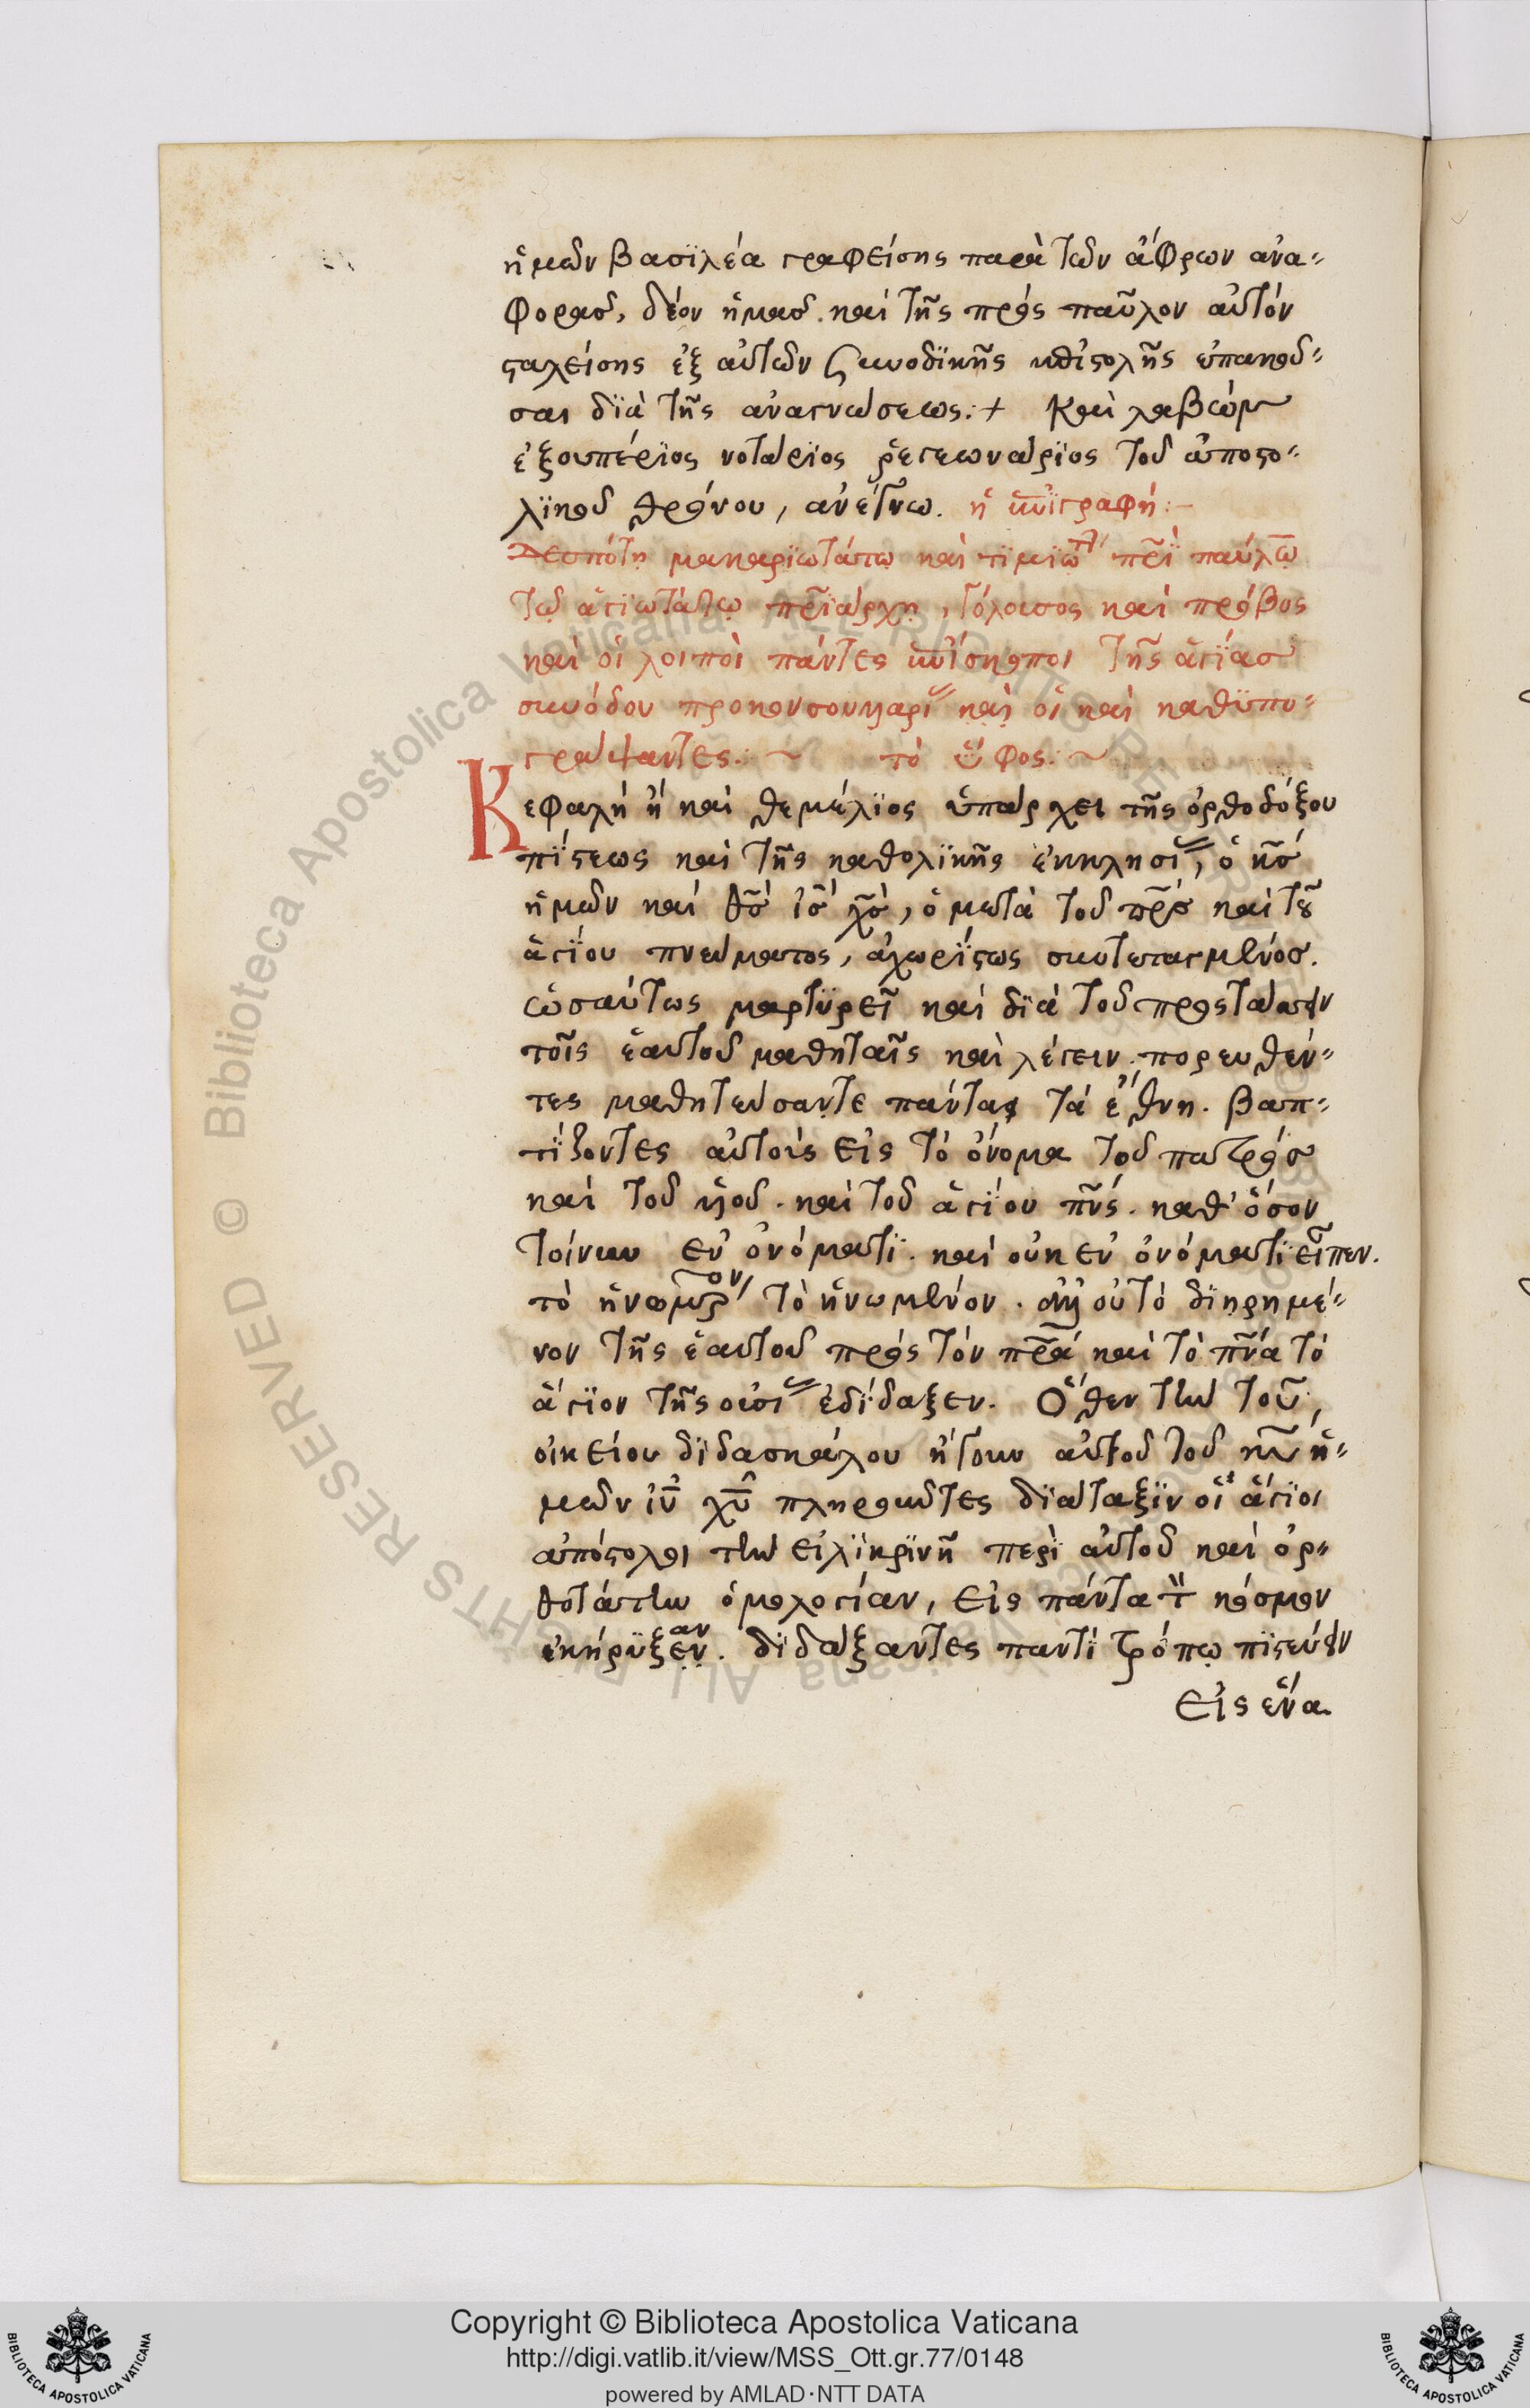 ἡμῶν βασϊλέα γραφείσης παρὰ τῶν ἄφρων ἀνα-
φορᾶσ, δέον ἡμᾶσ. καὶ τῆς πρὸς παῦλον αὐτὸν
σταλείσης ἐξ αὐτῶν συνοδϊκῆς ἐπιστολῆς ἐπακοῦ-
σαι δϊὰ τῆς ἀναγνώσεως:+ Καὶ λαβὼν
ἐξουπέρϊος νοτάρϊος ῥεγεωνάρϊος τοῦ ἀποστο-
λϊκοῦ θρόνου, ἀνέγνω. ἡ ἐπϊγραφή:-
Δεσπότῃ μακαρϊωτάτῳ καὶ τϊμϊωτ πρϊ παύλῳ
τῷ ἁγϊωτάτῳ πρϊάρχῃ, γόλοισος καὶ πρόβος
καὶ οἱ λοιποὶ πάντες ἐπίσκοποι τῆς ἁγϊασ
συνόδου προκονσουλαρϊ καὶ οἱ καὶ καθϋπο-
γράψαντες:~ τὸ ὕφος:~
Κεφαλὴ ἢ καὶ θεμέλϊος ὑπάρχει τῆς ὀρθοδόξου
πίστεως καὶ τῆς καθολϊκῆς ἐκκλησϊ, ὁ κσ
ἡμῶν καὶ θσ ισ χσ, ὁ μετὰ τοῦ πρσ καὶ τοῦ
ἁγΐου πνεύματος, ἀχωρΐστως συντεταγμένοσ.
ὡσαύτως μαρτϋρεῖ καὶ δϊὰ τοῦ προστάττειν
τοῖς ἑαυτοῦ μαθηταῖς καὶ λέγειν. πορευθέν-
τες μαθητεύσαντε πάντας τὰ ἔθνη. βαπ-
τΐζοντες αὐτοὶς εἰς τὸ ὄνομα τοῦ πατρόσ
καὶ τοῦ υἱοῦ. καὶ τοῦ ἁγίου πνς. καθ' ὅσον
τοίνυν ἐν ὀνόματϊ. καὶ οὐκ ἐν ὀνόματϊ εἶπεν.
τὸ ἡνωμένον τὸ ἡνωμένον. ἀλλ' οὐ τὸ δϊηρημέ-
νον τῆς ἑαυτοῦ πρὸς τὸν πρα καὶ τὸ πνα τὸ
ἅγϊον τῆς οὐσι ἐδίδαξεν. Ὅθεν τὴν τοῦ
οἰκείου δϊδασκάλου ἤγουν αὐτοῦ τοῦ κυ ἡ-
μῶν ιυ χυ πληροῦντες δϊάταξϊν οἱ ἅγϊοι
ἀπόστολοι τὴν εἰλϊκρϊνῆ περὶ αὐτοῦ καὶ ὀρ-
θοτάτην ὁμολογίαν, εἰς πάντα τὸν κόσμον
ἐκήρϋξεν αν. δϊδάξαντες παντὶ τρόπῳ πϊστεύειν
εἰς ἕνα.
Copyright © Biblioteca Apostolica Vaticana
http://digi.vatlib.it/view/MSS_Ott.gr.77/0148
powered by AMLAD·NTT DATA